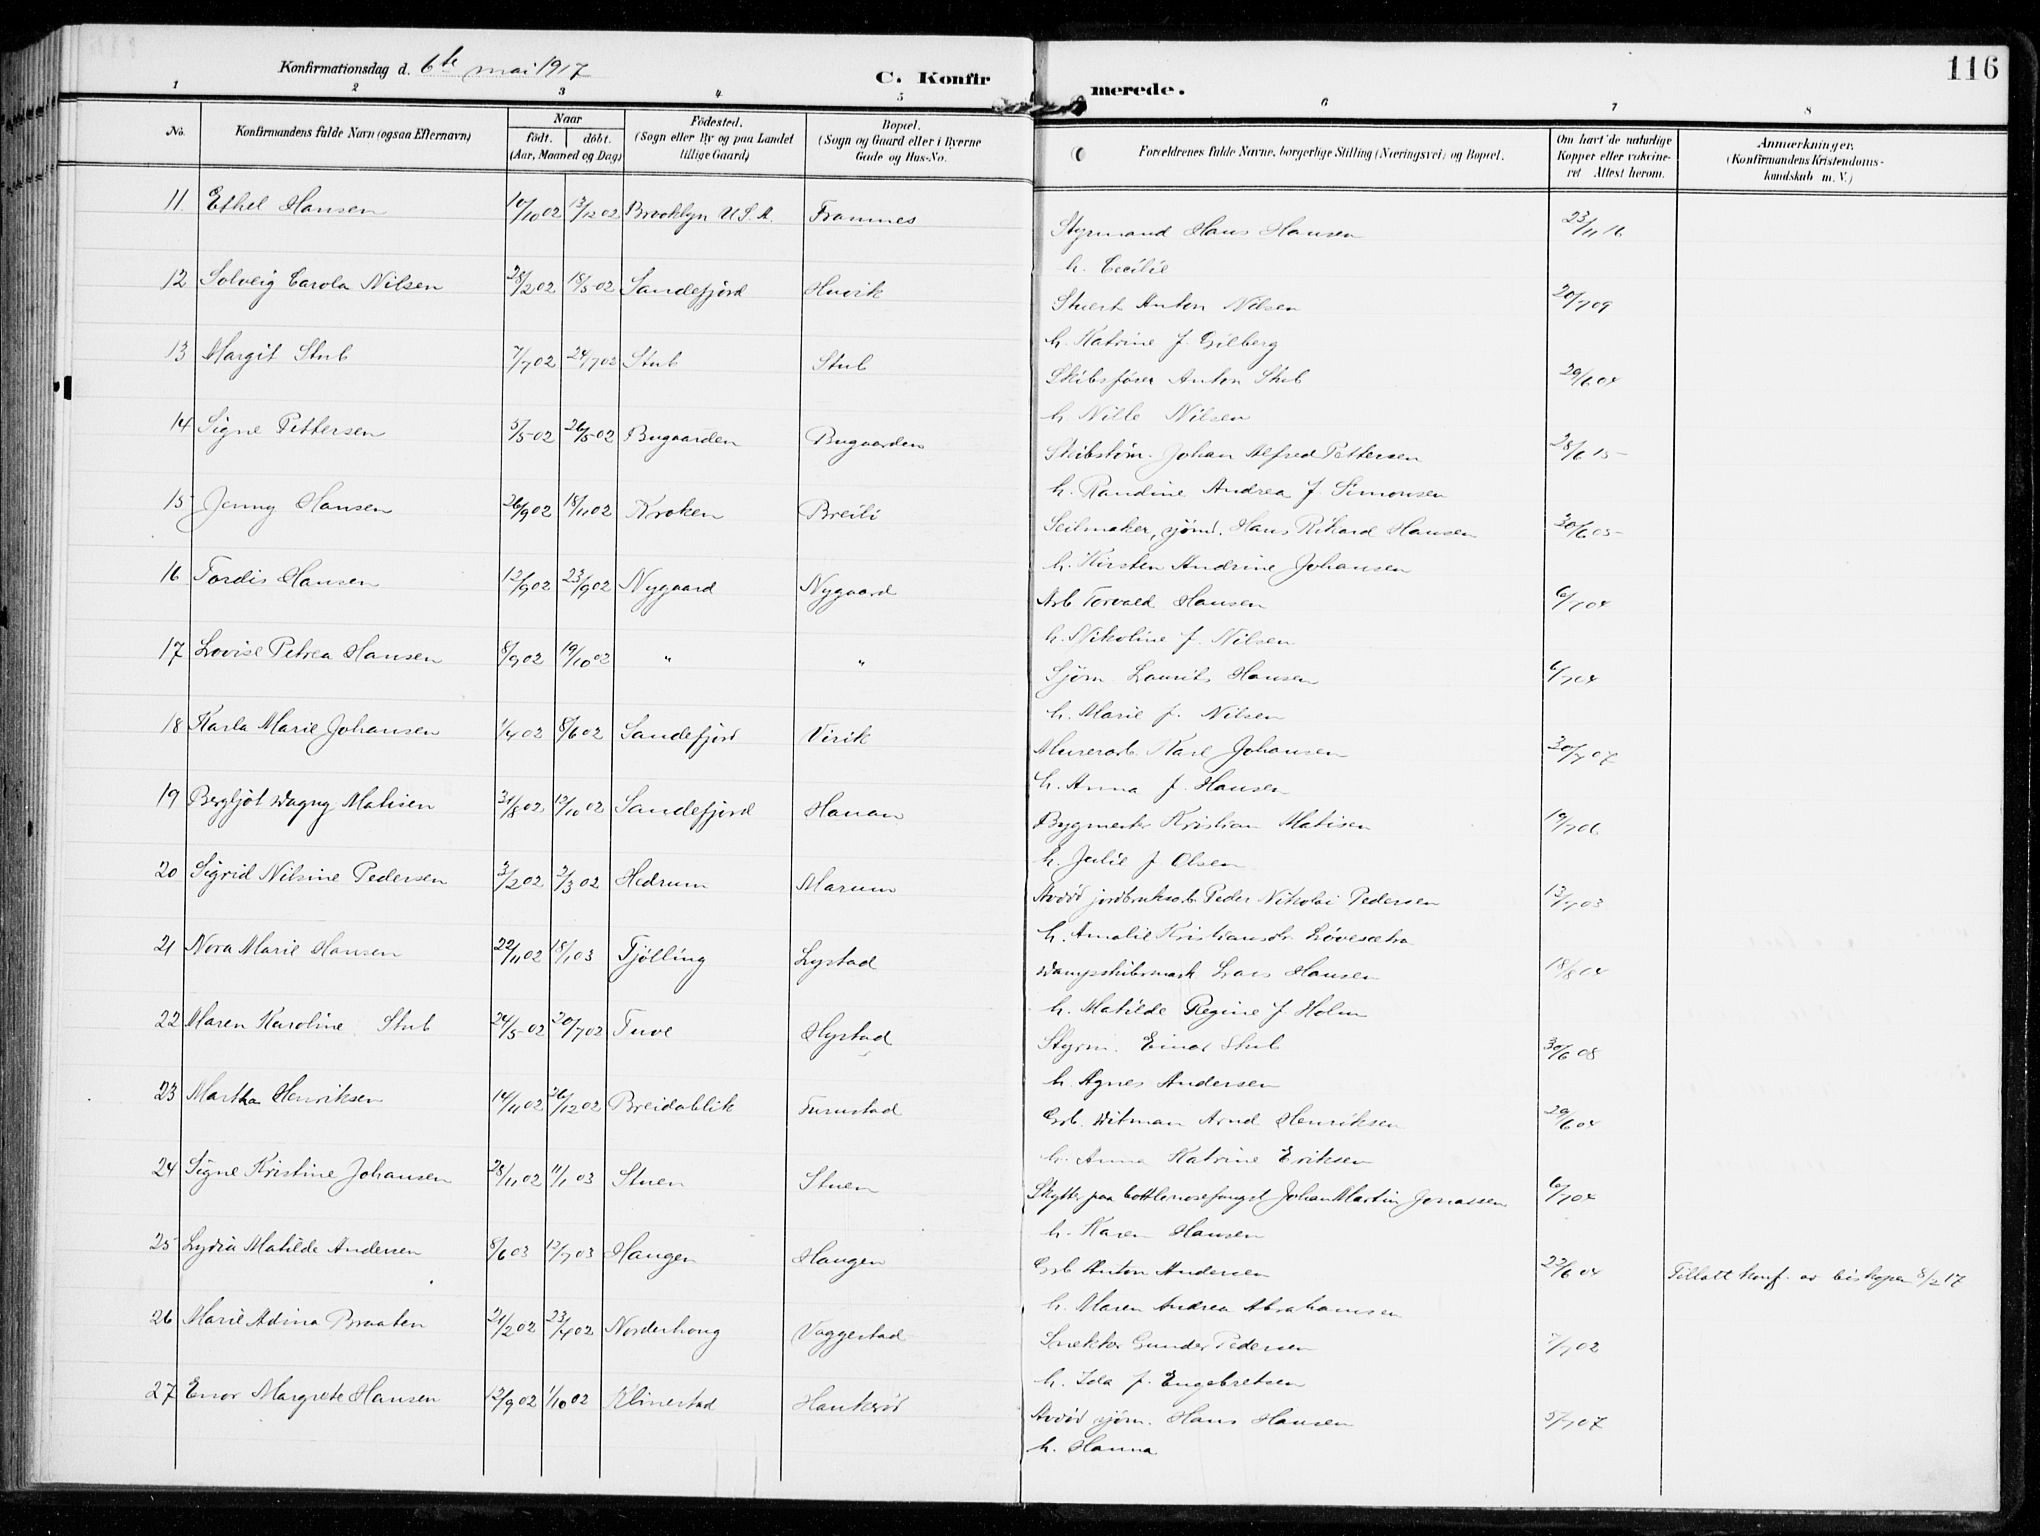 116
Konfirmationsdag d. 6te mai 1917
C. Konfirmerede.
1 2 3 4 5 6 7 8
No. Konfirmandens fulde Navn (ogsaa Efternavn) Naar født. døbt. (Aar, Maaned og Dag) Fødested. (Sogn eller By og paa Landet tillige Gaard) Bopæl. (Sogn og Gaard eller i Byerne Gade og Hus-No. Forældrenes fulde Navne, borgerlige Stilling (Næringsvei) og Bopæl. Om havt de naturlige Kopper eller vakcineret Attest herom. Anmærkninger. (Konfirmandens Kristendomskundskab m. V.)
11. Ethel Hansen 10/10 02 13/12 02 Brooklyn U.S.A. Framnes Styrmand Hans Hansen 23/11 16
h. Cecilie
12 Solveig Carola Nilsen 28/2 02 18/5 02 Sandefjord Huvik Stuert Anton Nilsen 20/7 09
h. Katrine f. Gilberg
13 Margit Stub 7/7 02 24/7 02 Stub Stub Skibsfører Anton Stub 29/6 04
h. Nille Nilsen
14 Signe Pettersen 5/5 02 26/5 02 Bugaarden Bugaarden Skibstøm. Johan Alfred Pettersen 28/6 15
h. Randine Andrea f. Simonsen
15 Jenny Hansen 26/9 02 18/11 02 Kroken Breili Seilmaker, sjømd. Hans Rikard Hansen 30/6 05
h. Kirsten Andrine Johansen
16 Tordis Hansen 12/9 02 23/9 02 Nygaard Nygaard Arb Torvald Hansen 6/7 04
h. Nikoline f. Nilsen
17 Lovise Petrea Hansen 8/9 02 19/10 02 " " Sjøm. Laurits Hansen 6/7 04
h. Marie f. Nilsen
18 Karla Marie Johansen 1/4 02 8/6 02 Sandefjord Virik Murerarb. Karl Johansen 30/7 07
h. Anna f. Hansen
19 Bergljot Dagny Matisen 31/8 02 12/10 02 Sandefjord Hauan Bygmester Kristian Matisen 19/7 06
h. Julie f Olsen
20 Sigrid Nilsine Pedersen 3/2 02 2/3 02 Hedrum Marum Avdød jordbruksarb Peder Nikolai Pedersen 13/7 03
h. Amalie Kristiansdr. Løvesætra
21 Nora Marie Hansen 22/11 02 18/1 03 Tjølling Lystad Dampskibsmask Lars Hansen 18/8 04
h. Matilde Regine f Holm
22 Maren Karoline Stub 24/5 02 20/7 02 Tuve Hystad Styrm. Einar Stub 30/6 08
h. Agnes Andersen
23 Martha Henriksen 14/11 02 26/12 02 Breidablik Furustad Grb. Ditman Arnd Henriksen 29/6 04
h. Anna Katrine Eriksen
24 Signe Kristine Johansen 28/11 02 11/1 03 Stuen Stuen Skytter paa bottlenosefangst Johan Martin Jonassen 6/7 04
h. Karen Hansen
25 Lydia Matilde Andersen 8/6 03 12/7 03 Haugen Haugen Grb Anton Andersen 23/6 04 Tillatt konf. av biskopen 8/2 17
h. Maren Andrea Abrahamsen
26 Marie Adina Braaten 21/2 02 23/4 02 Norderhong Vaggestad Snekker Gunder Pedersen 7/7 02
h. Ida f. Engebretsen
27 Enor Margrete Hansen 12/9 02 1/10 02 Klinestad Haukerød Avdød sjøm. Hans Hansen 5/7 07
h. Hanna